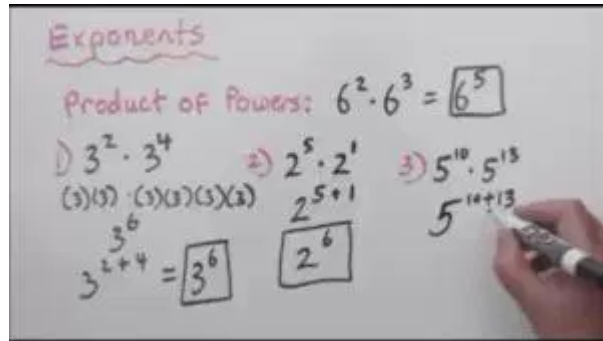 Exponents
Product of Powers: 6² · 6³ = 6⁵
1) 3² · 3⁴
(3)(3) · (3)(3)(3)(3)
3⁶
3²⁺⁴ = 3⁶
2) 2⁵ · 2¹
2⁵⁺¹
2⁶
3) 5¹⁰ · 5¹³
5¹⁰⁺¹³